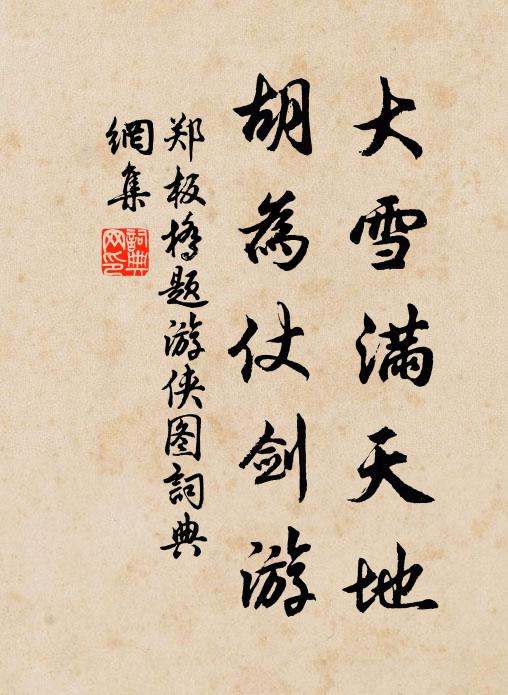 大雪满天地
胡為仗剑游
郑板橋题游侠图詞典
網集
詞典
网印